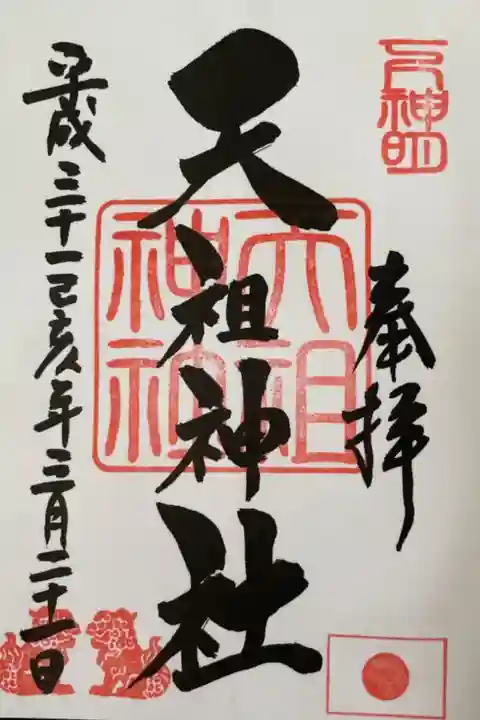 奉拝
天祖神社
天祖神社
平成三十一己亥年三月二十一日